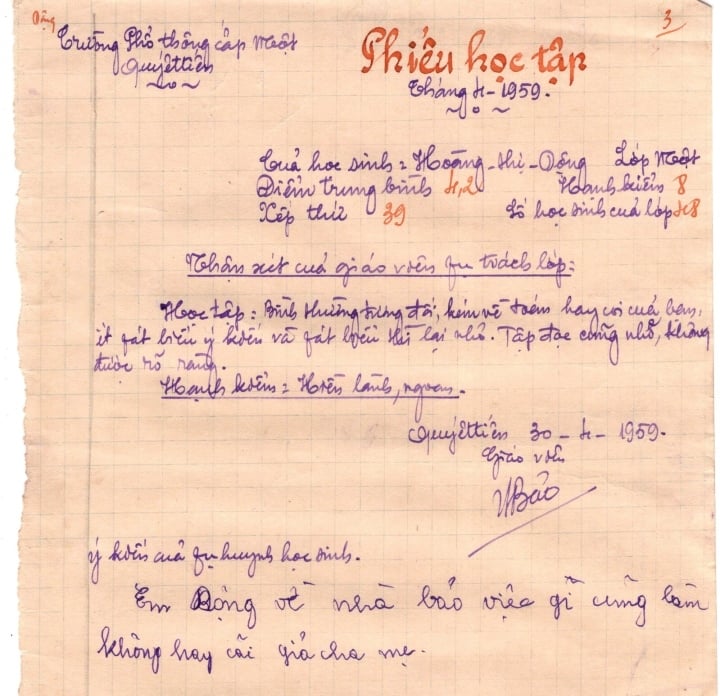 3
Trường Phổ thông cấp Một
Quyết tiến
Phiếu học tập
Tháng 4-1959.
Cuả học sinh: Hoàng-thị-Dộng Lớp Một
Điểm trung bình 4,2 Hạnh kiểm 8
Xếp thứ 39 Số học sinh cuả lớp 48
Nhận xét cuả giáo viên fụ trách lớp:
Học tập: Bình thường trung đối, kém về toán hay coi cuả bạn,
ít fát biểu ý kiến và fát biểu thì lại nhỏ. Tập đọc cũng nhỏ, không
được rõ ràng.
Hạnh kiểm: Hiền lành, ngoan.
Quyết tiến 30-4-1959.
Giáo viên
Bảo
ý kiến cuả fụ huynh học sinh.
Em Dộng về nhà bảo việc gì cũng làm
không hay cãi giả cha mẹ.